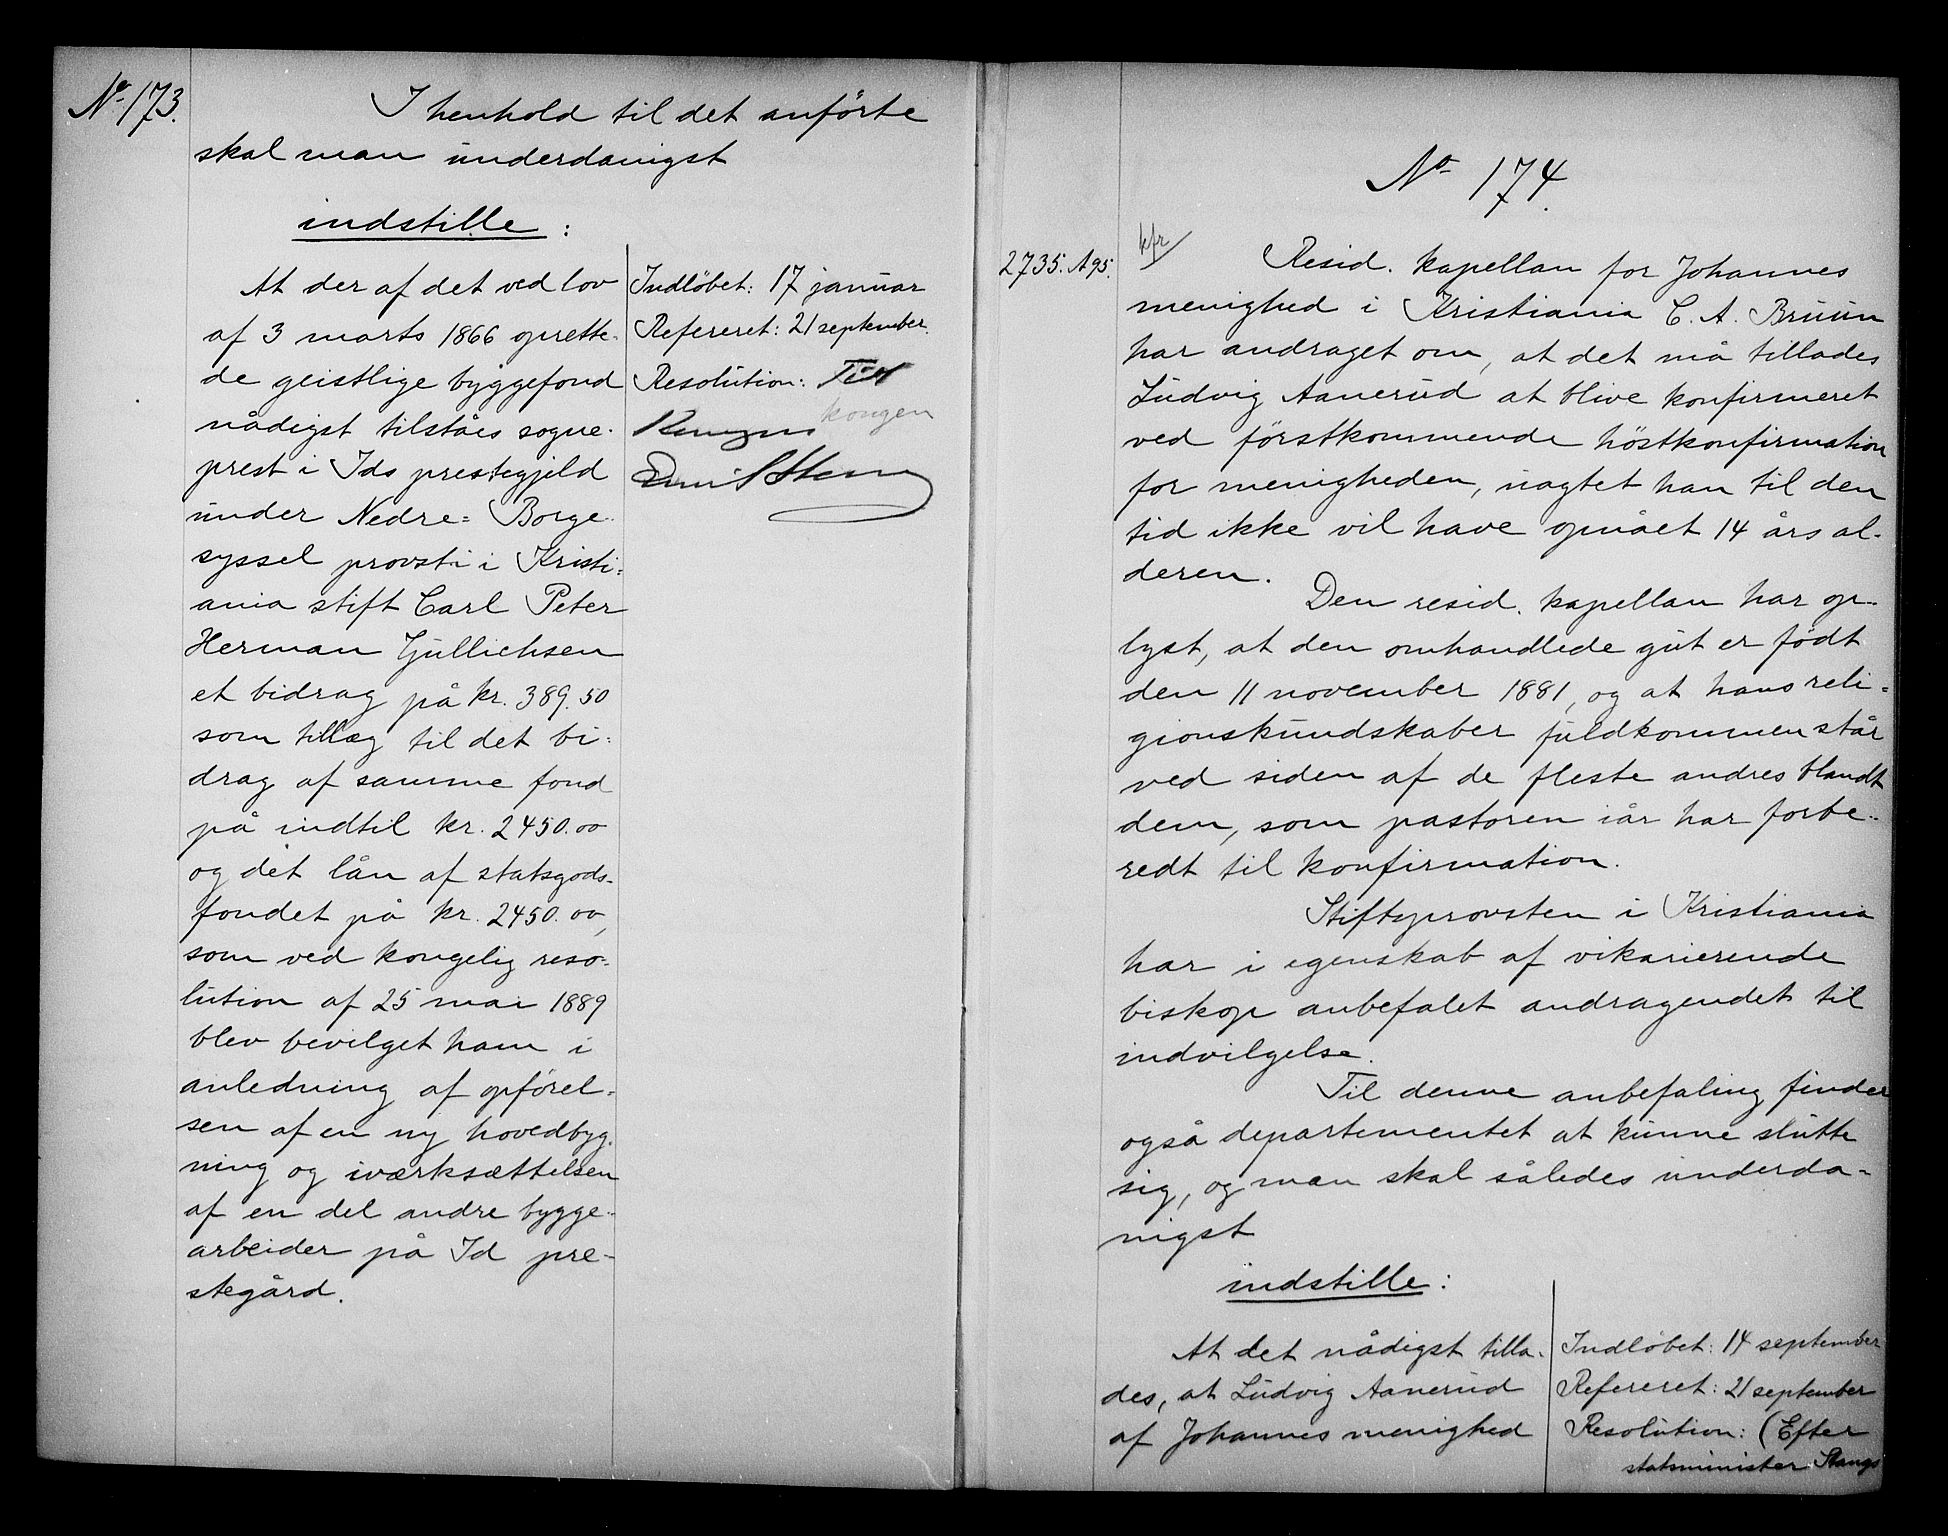 No 173.
I henhold til det anförte
skal man underdanigst
indstille:
At der af det ved lov
af 3 marts 1866 oprette-
de geistlige byggefond
nådigst tilståes sogne-
prest i Ids prestegjeld
under Nedre= Borge-
syssel provsti i Kristi=
ania stift Carl Peter
Herman Gjullichsen
et bidrag på kr. 389.50
som tillæg til det bi-
drag af samme fond
på indtil kr. 2450.00
og det lån af statsgods-
fondet på kr. 2450.00,
som ved kongelig reso-
lution af 25 mai 1889
blev bevilget ham i
anledning af opförel-
sen af en ny hovedbyg-
ning og iværksættelsen
af en del andre bygge-
arbeider på Id pre-
stegård.
Indlöbet: 17 januar
Refereret: 21 september.
Resolution:
kongen
No 174.
2735. A95.
kfr
Resid. kapellan for Johannes
menighed i Kristiania C. A. Bruun
har andraget om, at det må tillades
Ludvig Aanerud at blive konfirmeret
ved förstkommende höstkonfirmation
for menigheden, uagtet han til den
tid ikke vil have opnået 14 års al-
deren.
Den resid. kapellan har op-
lyst, at den omhandlede gut er födt
den 11 november 1881, og at hans reli-
gionskundskaber fuldkommen står
ved siden af de fleste andres blandt
dem, som pastoren iår har forbe-
redt til konfirmation.
Stiftsprovsten i Kristiania
har i egenskab af vikarierende
biskop anbefalet andragendet til
indvilgelse.
Til denne anbefaling finder
også departementet at kunne slutte
sig, og man skal således underda-
nigst
indstille:
At det nådigst tilla-
des, at Ludvig Aanerud
af Johannes menighed
Indlöbet: 14 september
Refereret: 21 september
Resolution: (Efter
statsminister Stangs